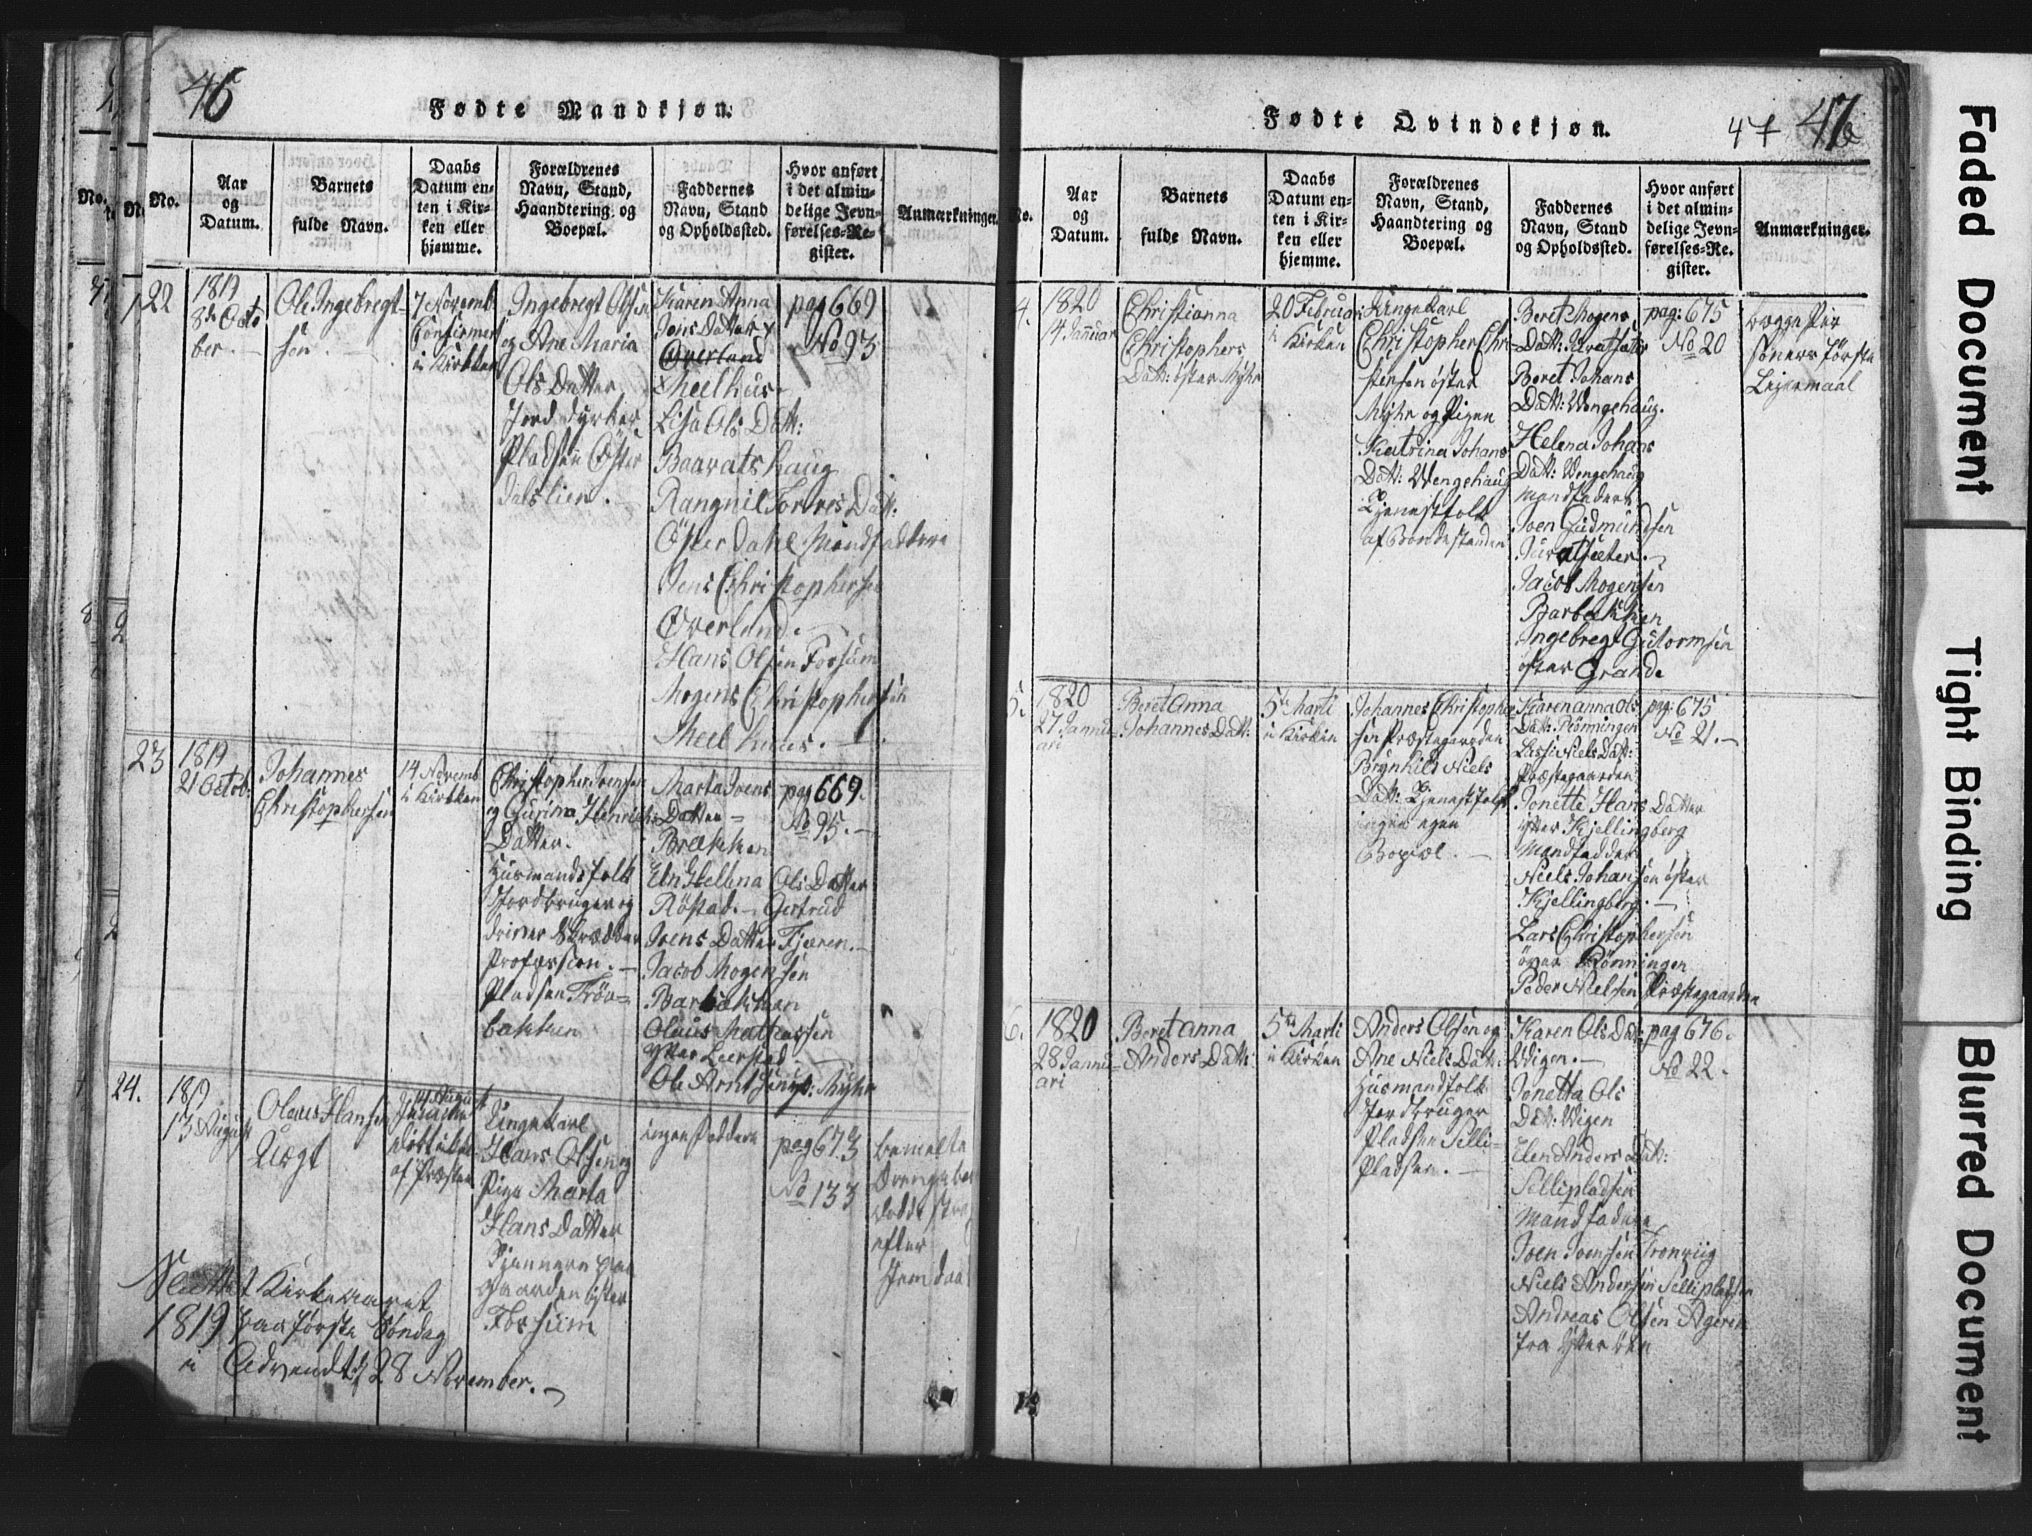 46
Fødte Mandkjøn.
No.
Aar
og
Datum.
Barnets
fulde Navn.
Daabs
Datum en-
ten i Kir-
ken eller
hjemme.
Forældrenes
Navn, Stand,
Haandtering og
Boepæl.
Faddernes
Navn, Stand
og Opholdssted.
Hvor anført
i det almin-
delige Jevn-
førelses-Re-
gister.
Anmærkninger.
22
1819
8de Octo
ber.
Ole Ingebregt-
sen.
7 Novemb
Confirmer
i Kirkken
Ingebregt Olsen
og Ane Maria
Ols Datter
Jorddyrker
Pladsen Öster
dalslien.
Karen Anna
Jens Datter
Overland
Meelhus
Lisa Ols Datt:
Baaratshaug
Rangnil Torres Datt:
Öster Dahl Mandfaddere
Jens Christophersen
Overland.
Hans Olsen Forsum
Mogens Christophersen
Meelhuus.
pag 669
No 93
23
1819
21 Octob:
Johannes
Christophersen
14 Novemb
i Kirkken
Christopher Ivensen
og Gurina Henrichs
Datter.
Husmandsfolk
Jordbruger og
driver Skrædder
Profession.
Pladsen Tröe-
bakken
Marta Ivens
Datter
Brækken
Eln Hellena Ols Datter
Röstad. Gertrud
Ivens Datter Fjæren.
Jacob Mogensen
Barbakken
Olaus Mathæssen
Ytter Leerstad
Ole Arntsen Myhr
pag 669.
No 95.
24.
1819
13 August
Olaus Hansen
Uægt
14 August
af Præsten
Ungekarl
Hans Olsen og
Pige Marta
Hans Datter
Tjennere paa
Gaarden öster
Forsum
ingen Faddere
pag 673
No 133
bemelte
Drengebar
döde strax
efter
Hjemdaa
Sluttet Kirkeaaret
1819 paa förste Söndag
i Advendt, 28 November.
Fødte Qvindekjøn.
47
47
No.
Aar
og
Datum.
Barnets
fulde Navn.
Daabs
Datum en-
ten i Kir-
ken eller
hjemme.
Forældrenes
Navn, Stand,
Haandtering og
Boepæl.
Faddernes
Navn, Stand
og Opholdssted.
Hvor anført
i det almin-
delige Jevn-
førelses-Re-
gister.
Anmærkninger.
4.
1820
4 Januar
Christianna
Christophers
Datt: öster Myhr
20 Februar
i Kirken
Ungekarl
Christopher Chri-
stensen öster
Myhr og Pigen
Katrina Johans
Datt: Wengehaug
Tjenestfolk
af Bondestanden
Beret Mogens
Datt: Juratsæter
Beret Johans
Datt: Wengehaug.
Helena Johans
Datt: Wengehaug
Mandfadere
Joen Gudmundsen
Juratsæter.
Jacob Mogensen
Barbakken
Ingebregt Guttormsen
öster Grande
pag: 675
No 20
begge Per
soners förste
Leiermaal
5.
1820
27 Janu-
ari
Beret Anna
Johannes Datt:
5te Marti
i Kirken
Johannes Christopher
sen Præstegaarden
Brynhild Niels
Datt: Tjenestfolk
ingen egen
Bopæl.
Karen Anna Ols
Datt: Rönningen
Lassi Niels Datt:
Præstegaarden
Jonette Hans Datter
ytter Kjellingberg
Mandfadder
Niels Johansen öster
Kjellingberg.
Lars Christophersen
över Rönningen
Peder Nielsen Præstegaarden
pag: 675
No 21.
6.
1820
28 Janu-
ari
Beret Anna
Anders Datt:
5te Marti
i Kirken
Anders Olsen og
Ane Niels Datt:
Husmandfolk
Jordbruger
Pladsen Selli-
Pladsen.
Karen Ols Datt:
Wigen.
Jonetta Ols
Datt: Wigen
Elen Anders Datt:
Sellipladsen
Mandfadere
Joen Joensen Tronviig
Niels Andersen Sellipladsen
Andreas Olsen Ageren
fra Ytteröen
pag 676.
No 22.
Faded Document
Tight Binding
Blurred Document